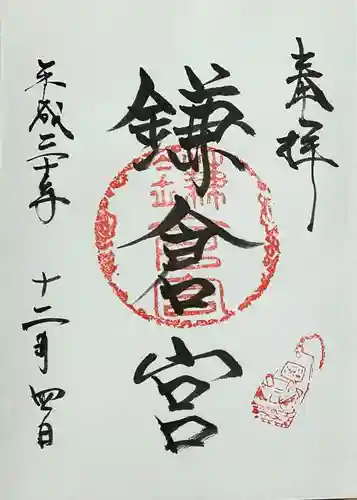 奉拝
鎌倉宮
平成三十年 十二月四日